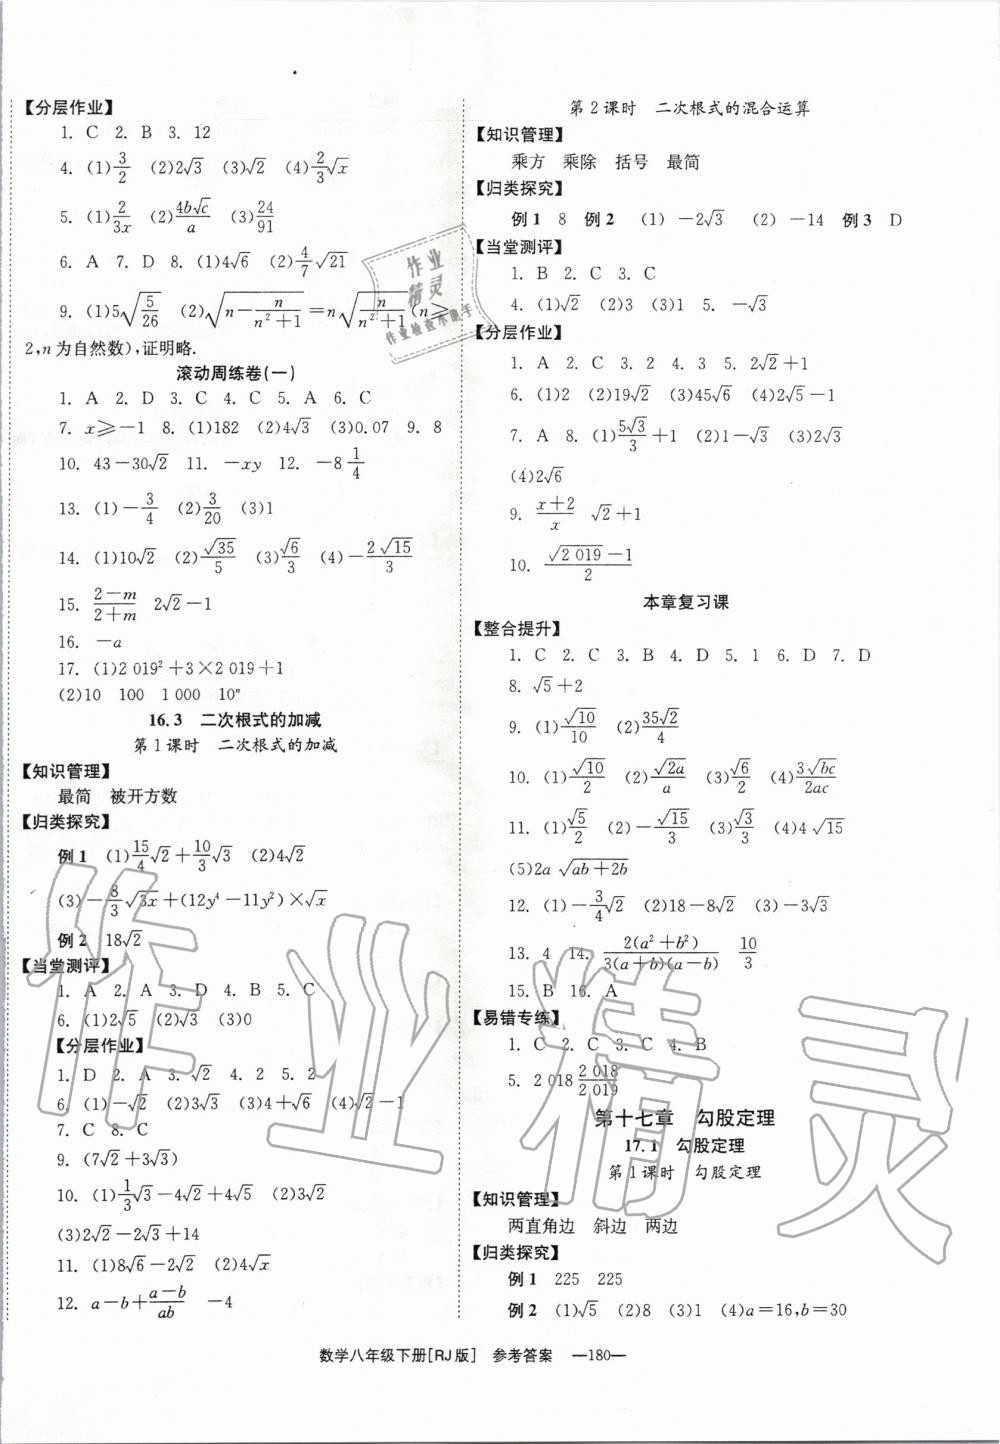 【分层作业】
1. C 2. B 3. 12
4. (1)3/2 (2)2√3 (3)√2 (4)2/3√x
5. (1)2/3x (2)4b√c/a (3)24/91
6. A 7. D 8. (1)4√6 (2)4/7√21
9. (1)5√(5/26) (2)√(n-n/(n²+1))=n√(n/(n²+1))(n≥
2,n为自然数),证明略.
滚动周练卷(一)
1. A 2. D 3. C 4. C 5. A 6. C
7. x≥-1 8. (1)182 (2)4√3 (3)0.07 9. 8
10. 43-30√2 11. -xy 12. -8 1/4
13. (1)-3/4 (2)3/20 (3)1
14. (1)10√2 (2)√35/5 (3)√6/3 (4)-2√15/3
15. (2-m)/(2+m) 2√2-1
16. -a
17. (1)2 019²+3×2 019+1
(2)10 100 1 000 10ⁿ
16.3 二次根式的加减
第1课时 二次根式的加减
【知识管理】
最简 被开方数
【归类探究】
例1 (1)15/4√2+10/3√3 (2)4√2
(3)-8/3√3x+(12y⁴-11y²)×√x
例2 18√2
【当堂测评】
1. A 2. A 3. D 4. B 5. C
6. (1)2√5 (2)√3 (3)0
【分层作业】
1. D 2. A 3. √2 4. 2 5. 2
6. (1)-√2 (2)3√3 (3)4+√6 (4)√2-1
7. C 8. C
9. (7√2+3√3)
10. (1)1/3√3-4√2+4√5 (2)3√2
(3)2√2-2√3+14
11. (1)8√6-2√2 (2)4√x
12. a-b+(a-b)/ab -4
第2课时 二次根式的混合运算
【知识管理】
乘方 乘除 括号 最简
【归类探究】
例1 8 例2 (1)-2√3 (2)-14 例3 D
【当堂测评】
1. B 2. C 3. C
4. (1)√2 (2)3 (3)1 5. -√3
【分层作业】
1. A 2. C 3. 2 4. 3 5. 2√2+1
6. (1)2 (2)19√2 (3)45√6 (4)2√5-1
7. A 8. (1)5√3/3+1 (2)1-√3 (3)2√3
(4)2√6
9. (x+2)/x √2+1
10. (√2 019-1)/2
本章复习课
【整合提升】
1. C 2. C 3. B 4. D 5. 1 6. D 7. D
8. √5+2
9. (1)√10/10 (2)35√2/4
10. (1)√10/2 (2)√2a/a (3)√6/2 (4)3√bc/2ac
11. (1)√5/2 (2)-√15/3 (3)√3/3 (4)4√15
(5)2a√(ab+2b)
12. (1)-3/4√2 (2)18-8√2 (3)-3√3
13. 4 14. 2(a²+b²)/3(a+b)(a-b) 10/3
15. B 16. A
【易错专练】
1. C 2. C 3. C 4. B
5. 2 018 2 018/2 019
第十七章 勾股定理
17.1 勾股定理
第1课时 勾股定理
【知识管理】
两直角边 斜边 两边
【归类探究】
例1 225 225
例2 (1)√5 (2)8 (3)1 (4)a=16,b=30
数学八年级下册[RJ版] 参考答案 —180—
作业精灵
作业
精灵
作业检查小助手